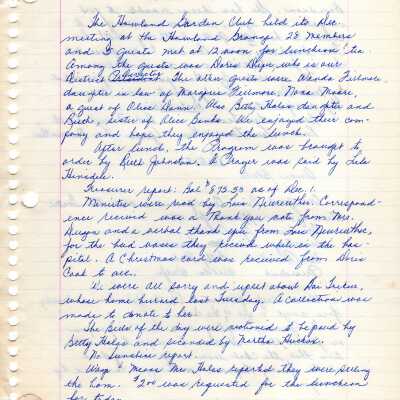 The Howland Garden Club held its Dec.
meeting at the Howland Grange. 28 Members
and 5 Guests met at 12 noon for luncheon & tea
Among the guests was Doris Dwyer who is our
District Director. The other guests were Wanda Fillmore,
daughter in law of Marquise Fillmore, Nona Moore,
a guest of Olive Dann. Also Betty Hales daughter and
Ruth, sister of Alice Banks. We enjoyed their com-
pany and hope they enjoyed the lunch.
After lunch, the Program was brought to
order by Ruth Johnston. A Prayer was said by Lela
Hinsdale.
Treasurer report: Bal $ as of Dec. 1.
Minutes were read by Lois Neureuther. Correspond-
ence received was a Thank you note from Mrs.
and a verbal thank you from Lois Neureuther,
for the bud vases they receive while in the hos-
pital. A Christmas card was received from Doris
Cook to all.
We were all sorry and upset about
whose home burned last Tuesday. A collection was
made to donate to her.
The Bills of the day were motioned to be paid by
Betty Hales and seconded by Martha
No Sunshine report.
Ways & Means Mrs. Hales reported they were selling
the ham. $2.00 was requested for the luncheon
for today.